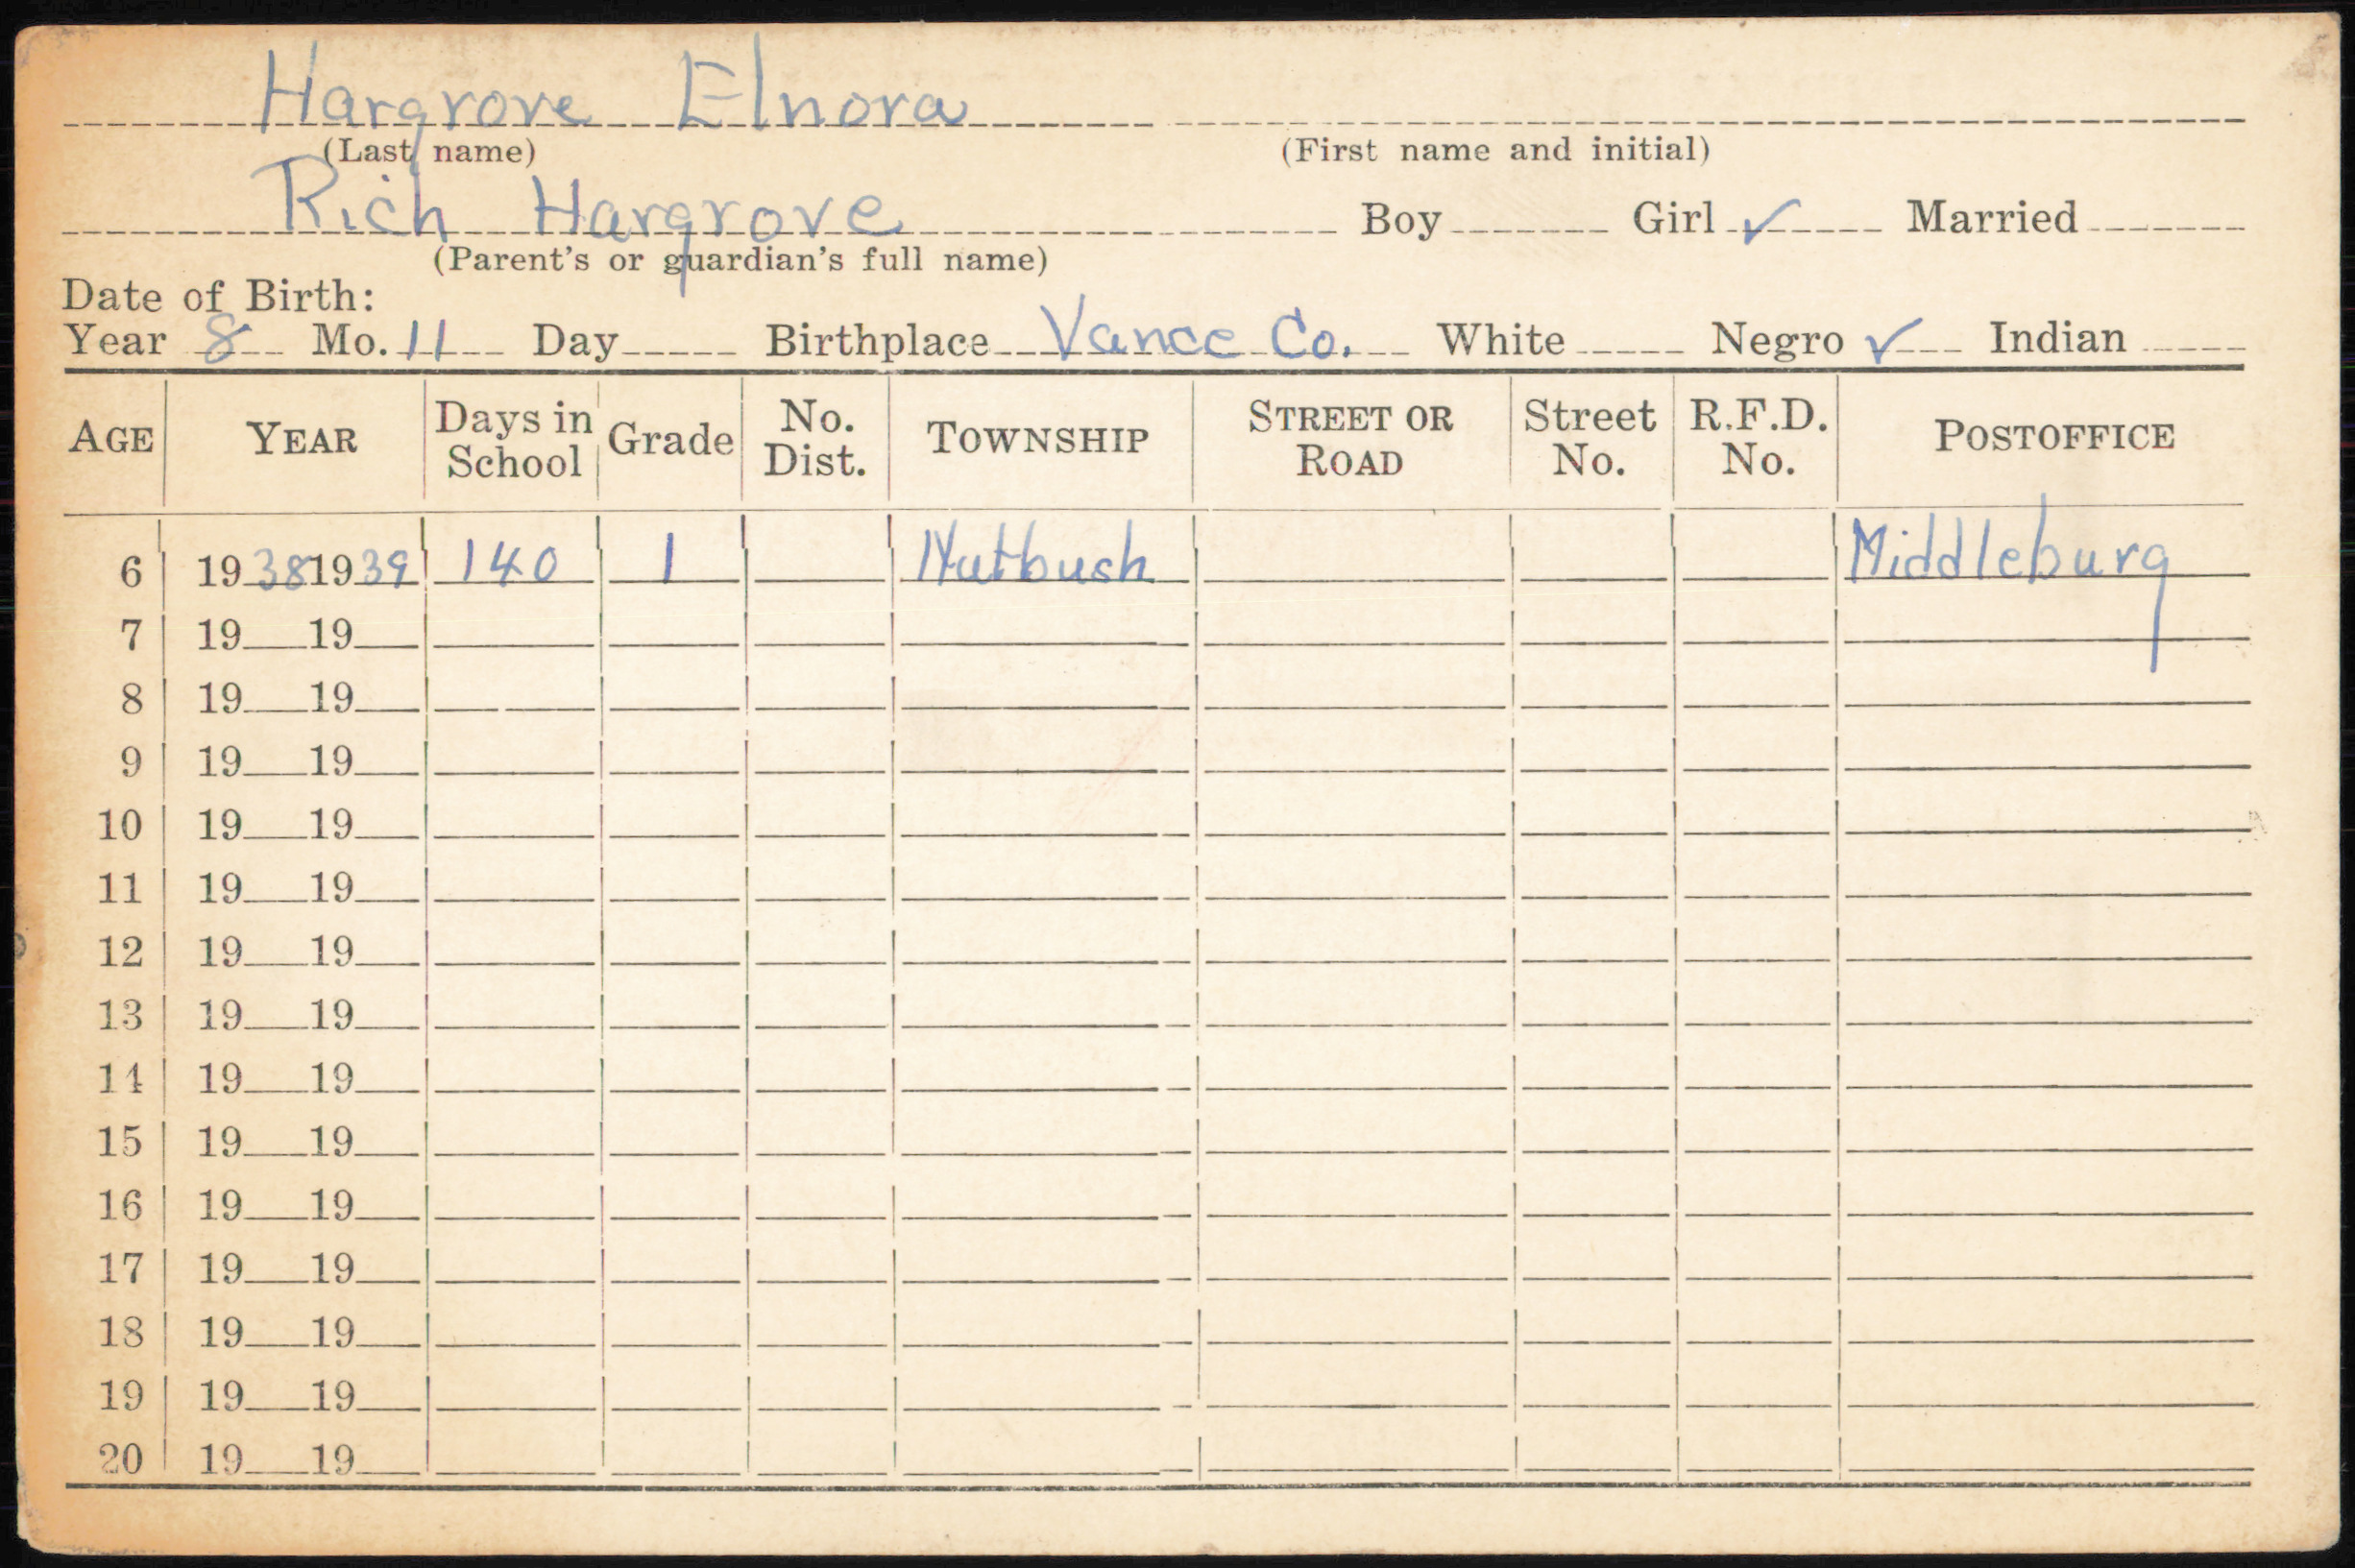 Hargrove Elnora
(Last name) (First name and initial)
Rich Hargrove Boy Girl ✓ Married
(Parent's or guardian's full name)
Date of Birth:
Year 8 Mo. 11 Day Birthplace Vance Co. White Negro ✓ Indian
AGE YEAR Days in School Grade No. Dist. TOWNSHIP STREET OR ROAD Street No. R.F.D. No. POSTOFFICE
6 1938 1939 140 1 Nutbush Middleburg
7 19 19
8 19 19
9 19 19
10 19 19
11 19 19
12 19 19
13 19 19
14 19 19
15 19 19
16 19 19
17 19 19
18 19 19
19 19 19
20 19 19